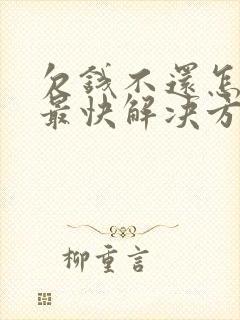 欠錢不還怎
最快解決方
柳重言